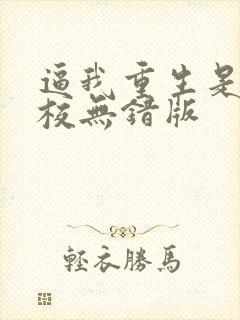 逼我重生是
校無錯版
輕衣勝馬